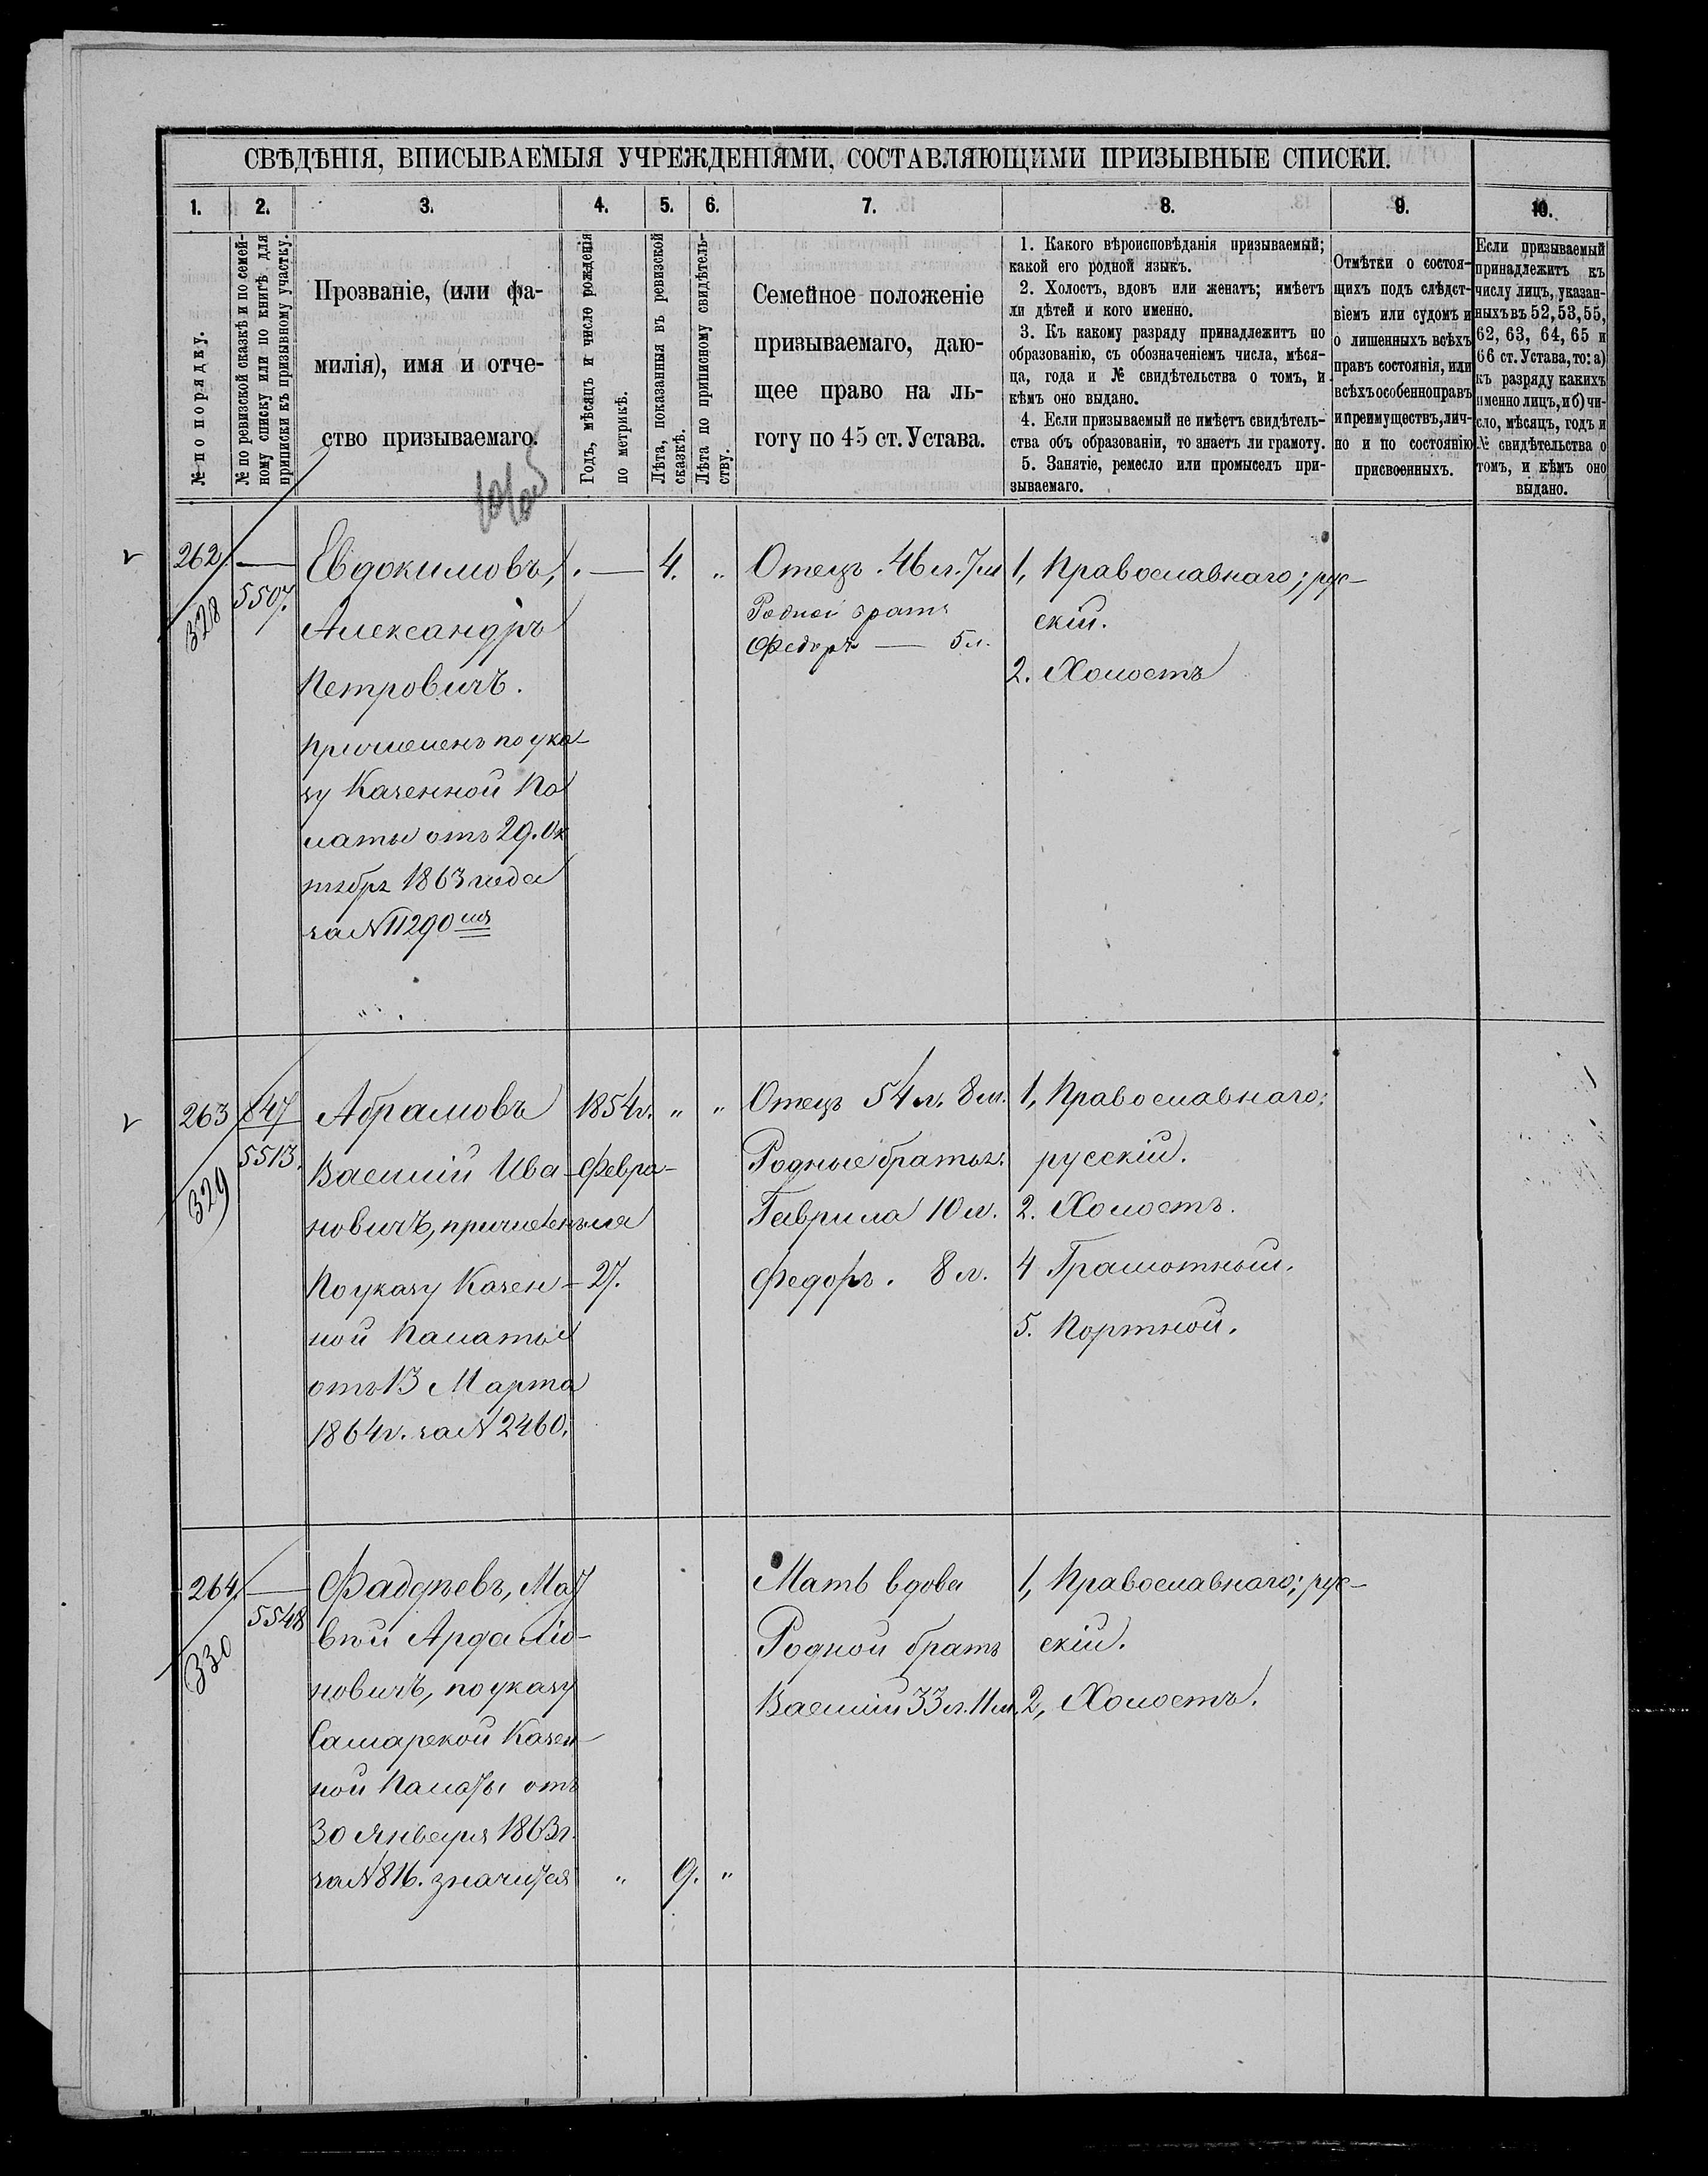 СВѢДѢНІЯ, ВПИСЫВАЕМЫЯ УЧРЕЖДЕНІЯМИ, СОСТАВЛЯЮЩИМИ ПРИЗЫВНЫЕ СПИСКИ.
1.
2.
3.
4.
5.
6.
7.
8.
9.
10.
№ по порядку.
№ по ревизской сказкѣ и по семей-
ному списку или по книгѣ для
приписки къ призывному участку.
Прозваніе, (или фа-
милія), имя и отче-
ство призываемаго.
Годъ, мѣсяцъ и число рожденія
по метрикѣ.
Лѣта, показанныя въ ревизской
сказкѣ.
Лѣта по приписному свидѣтель-
ству.
Семейное положеніе
призываемаго, даю-
щее право на ль-
готу по 45 ст. Устава.
1. Какого вѣроисповѣданія призываемый;
какой его родной языкъ.
2. Холостъ, вдовъ или женатъ; имѣетъ
ли дѣтей и кого именно.
3. Къ какому разряду принадлежитъ по
образованію, съ обозначеніемъ числа, мѣся-
ца, года и № свидѣтельства о томъ, и
кѣмъ оно выдано.
4. Если призываемый не имѣетъ свидѣтель-
ства объ образованіи, то знаетъ ли грамоту.
5. Занятіе, ремесло или промыселъ при-
зываемаго.
Отмѣтки о состоя-
щихъ подъ слѣдст-
віемъ или судомъ и
о лишенныхъ всѣхъ
правъ состоянія, или
всѣхъ особенно правъ
и преимуществъ, лич-
но и по состоянію
присвоенныхъ.
Если призываемый
принадлежитъ къ
числу лицъ, указан-
ныхъ въ 52, 53, 55,
62, 63, 64, 65 и
66 ст. Устава, то: а)
къ разряду какихъ
именно лицъ, и б) чи-
сло, мѣсяцъ, годъ и
№ свидѣтельства о
томъ, и кѣмъ оно
выдано.
262.
328
5507.
Евдокимовъ,
Александръ
Петровичъ.
причисленъ по ука-
зу Казенной Па
латы отъ 29. Ок
тября 1863 года
за № 11290
4.
Отецъ. 46 л. 7 м
Родной братъ
Федоръ — 5 л.
1, Православнаго; рус-
скій.
2. Холостъ
263
329
847
5513.
Абрамовъ
Василій Ива-
новичъ, причисленъ
По указу Казен-
ной Палаты
отъ 13 Марта
1864 г. за № 2460.
1854 г.
Февра-
ля
27.
" "
Отецъ 54 л. 8 м.
Родные братья.
Гаврила 10 л.
Федоръ. 8 л.
1, Православнаго;
русскій.
2. Холостъ.
4 Грамотный.
5. Портной.
264.
330
5548
Фадѣевъ, Мат
вѣй Ардаліо-
новичъ, по указу
Самарской Казен-
ной Палаты отъ
30 Января 1863 г.
за № 816. значится
" 9. "
Мать вдова
Родной братъ
Василій 33 л. 11 м.
1, Православнаго; рус-
скій.
2, Холостъ.